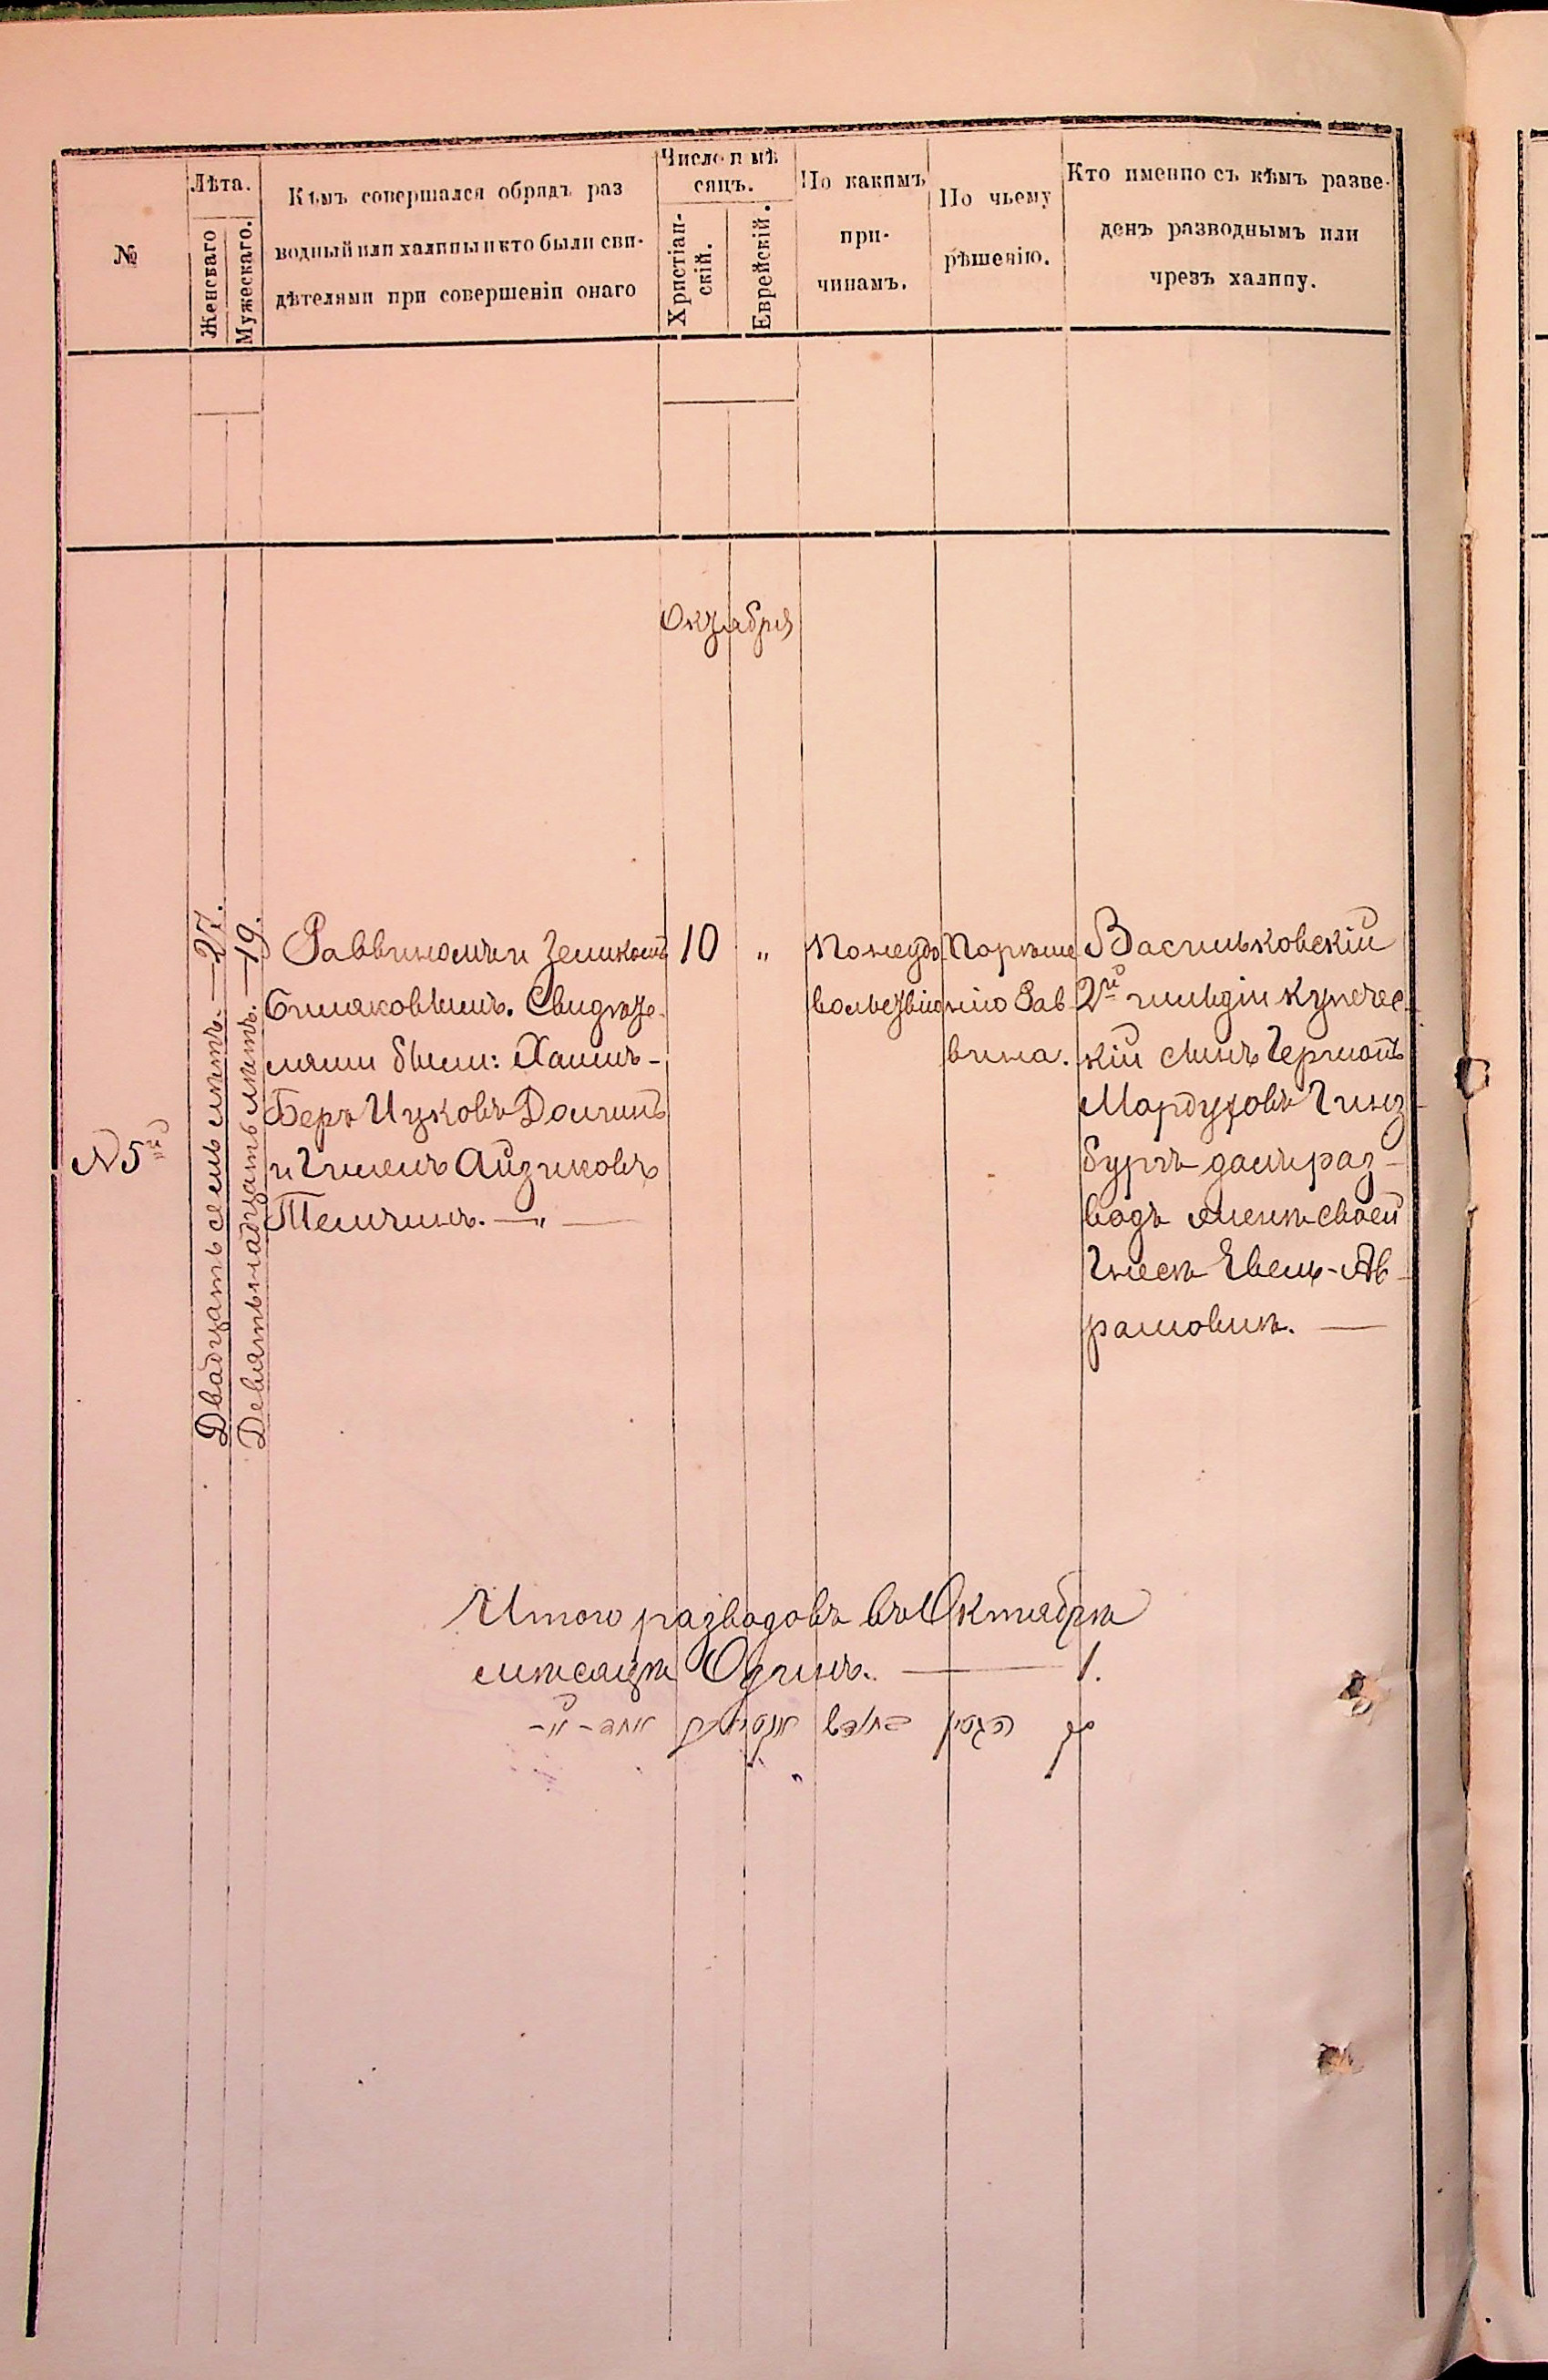 №
Лѣта.
Женскаго
Мужескаго.
Кѣмъ совершался обрядъ раз
водный или халицы и кто были сви-
дѣтелями при совершеніи онаго
Число и мѣ
сяцъ.
Христіан-
скій.
Еврейскій.
По какимъ
при-
чинамъ.
По чьему
рѣшенію.
Кто именно съ кѣмъ разве-
денъ разводнымъ или
чрезъ халицу.
Октября
№ 5й
Двадцать семь лѣтъ. — 27.
Девятьнадцать лѣтъ. — 19.
Раввиномъ
Свидѣте-
лями были: Хаимъ-
Беръ Ицковъ Долчинъ
и Гименъ Айзиковъ
Темчинъ. — „ —
10
„
По неудо
вольствію
По рѣше
нію Рав
вина.
Васильковскій
2й гильдіи купечес-
кій сынъ Германъ
Мордуховъ Гинз-
бургъ далъ раз-
водъ женѣ своей
Гнесѣ Евель-Аб-
рамовнѣ. —
Итого разводовъ въ Октябрѣ
мѣсяцѣ Одинъ. — 1.